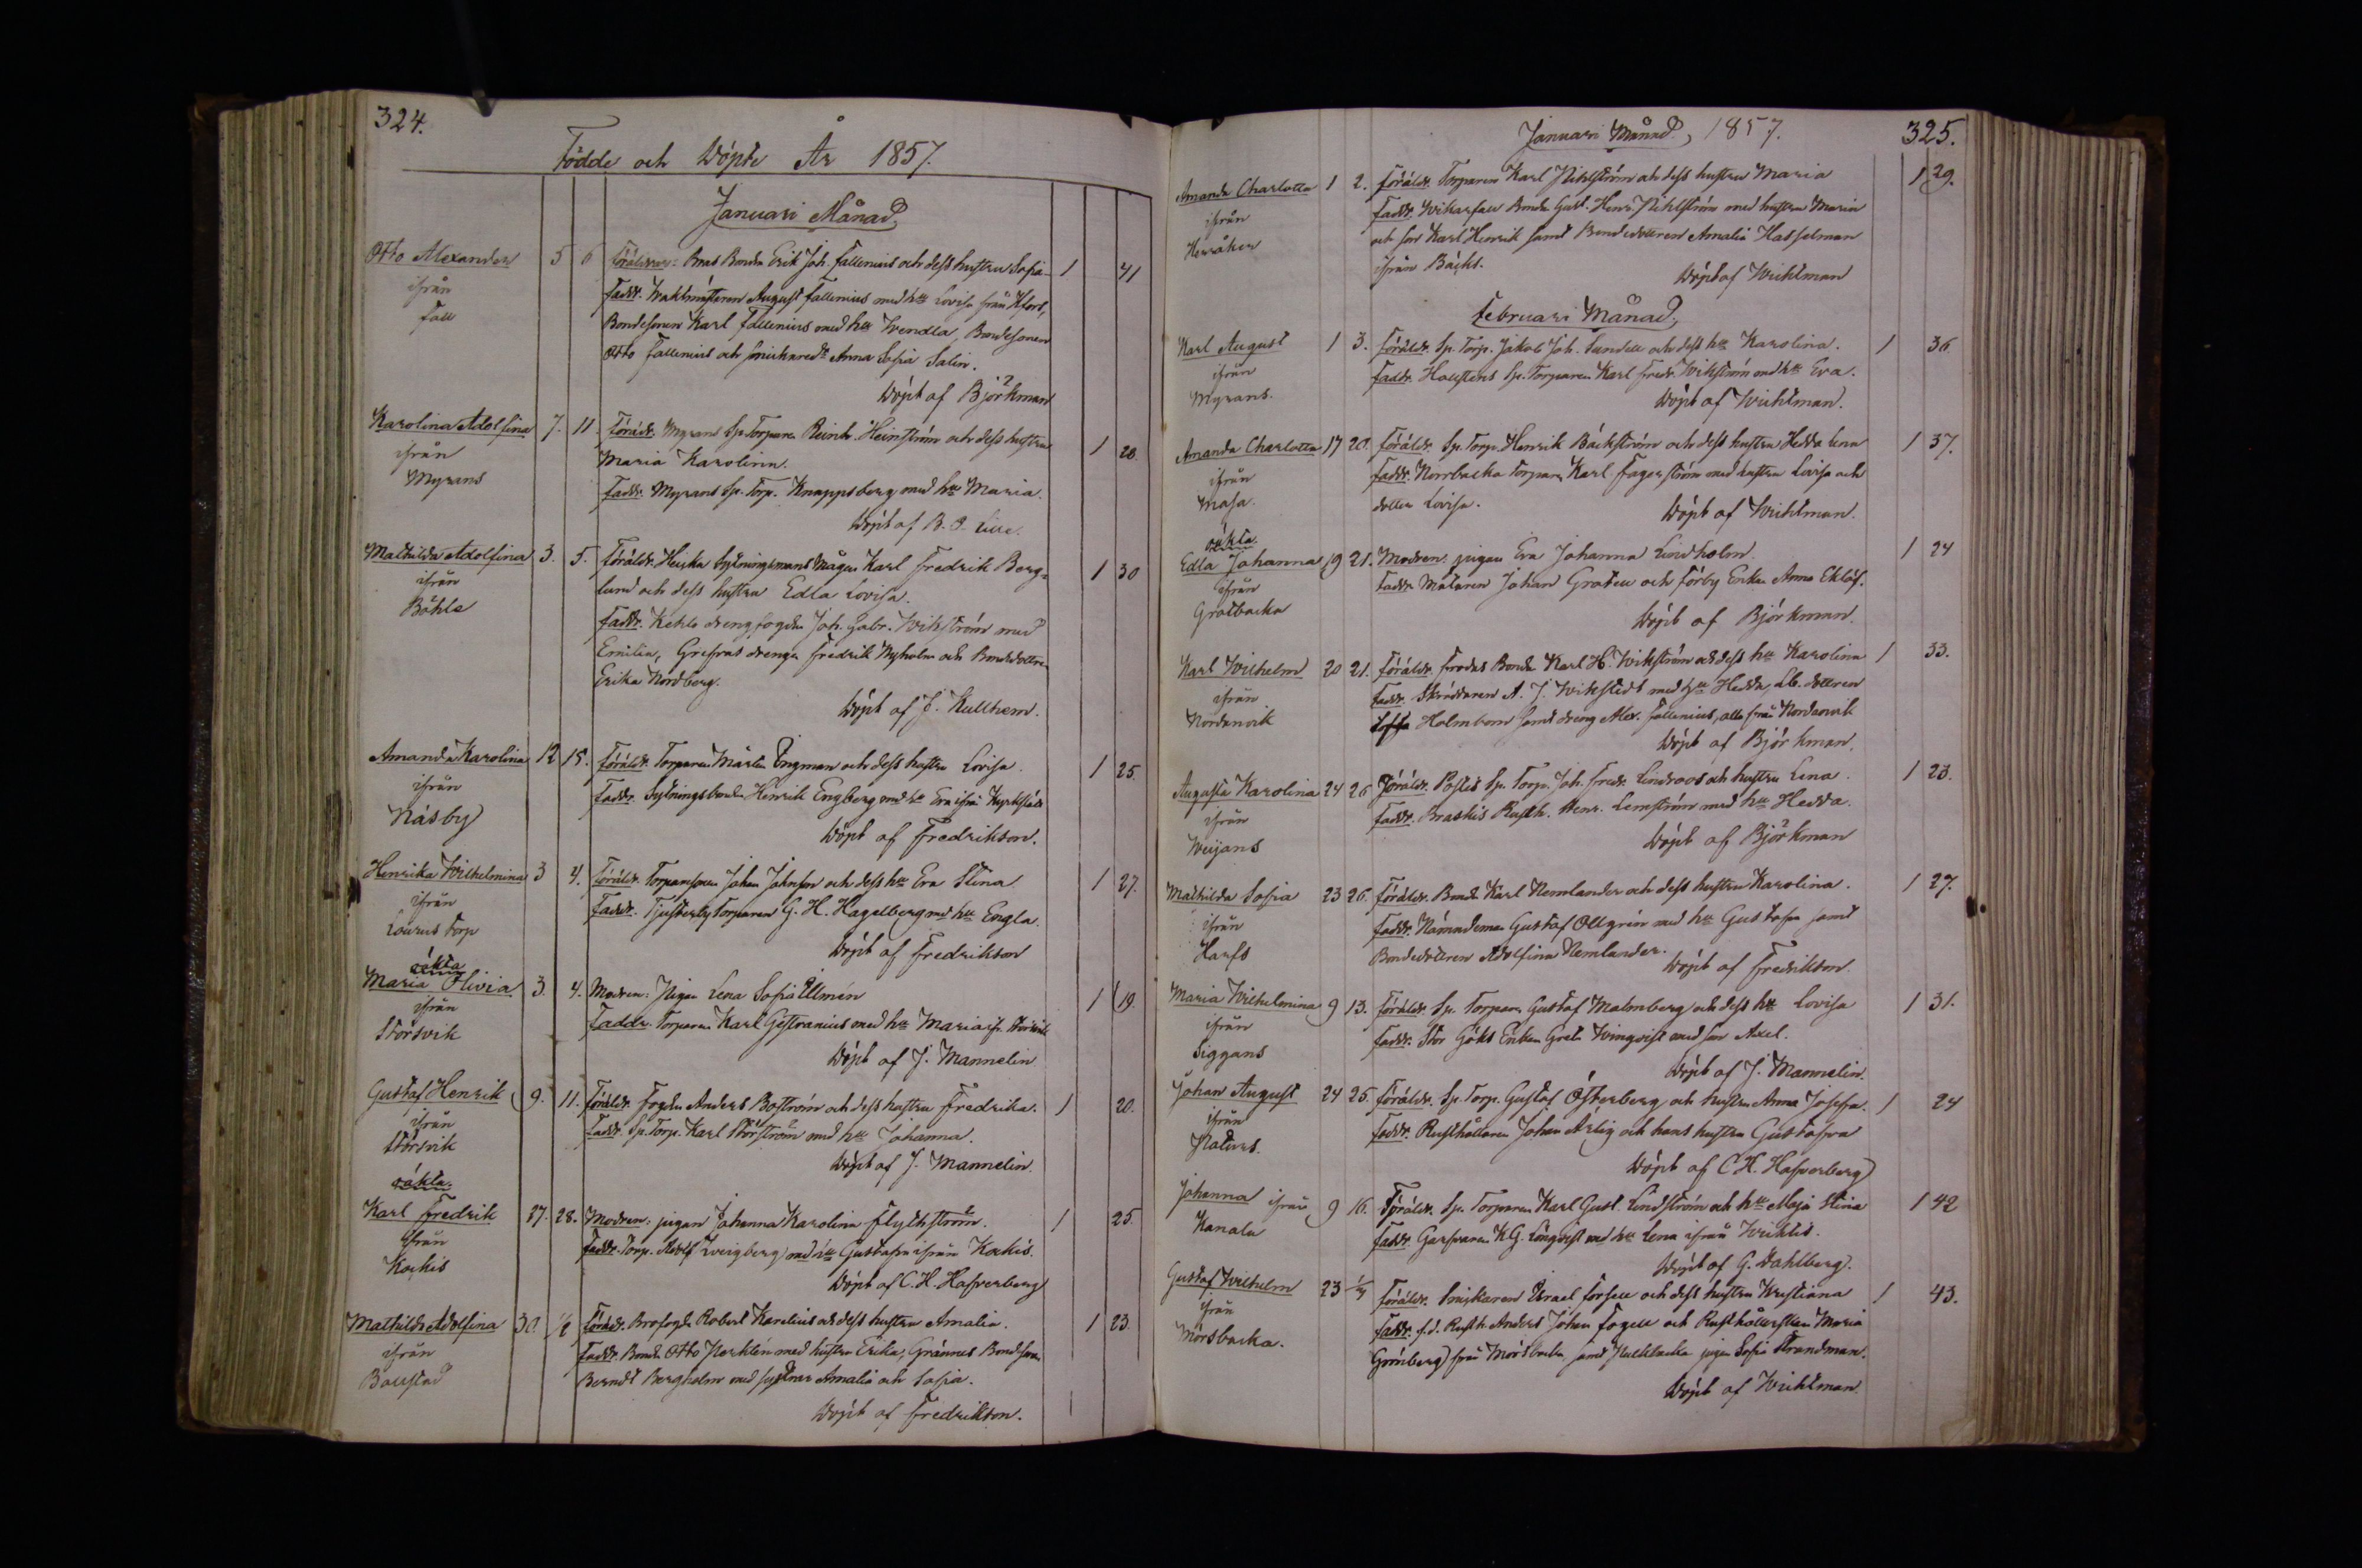 324.
Födde och Döpte År 1857.
Januari Månad
Otto Alexander 5 6 Föräldrar: Bonden Erik Joh. Fallenius och dess hustru Sofia 1 41
ifrån Faddr. Waktmästaren August Fallenius med h:u Lovisa från H:fors,
Fall Bondesonen Karl Fallenius med h:u Wendla, Bondesonen
Otto Fallenius och Anna Sofia Salin.
Döpt af Björkman
Karolina Adolfina 7. 11. Föräldr. Myrans Sp. Torparen Reinh. Heinström och dess hustru 1 28.
ifrån Maria Karolina.
Myrans Faddr. Myrans Sp. Torp. Knappsberg med h:u Maria.
Döpt af
Mathilda Adolfina 3. 5. Föräldr. Sytningsmans Mågen Karl Fredrik Berg- 1 30
ifrån lund och dess hustru Edla Lovisa.
Böhle Faddr. drengfogden Joh. Gabr. Wikström med
Emilia, drengen Fredrik Nyholm och Bondedottren
Erika Nordberg.
Döpt af J. Kullhem.
Amanda Karolina 12 15. Föräldr. Torparen Mårten Engman och dess hustru Lovisa. 1 25.
ifrån Faddr. Sytningsbonden Henrik Engberg med h:u Eva ifrån Kyrkstad
Näsby
Döpt af Fredrikson.
Henrika Wilhelmina 3 4. Föräldr. Torparesonen Johan Johnson och dess h:u Eva Stina 1 27.
ifrån Faddr. Tjusterby Torparen G. H. Hagelberg med h:u Engla.
Lourus torp
Döpt af Fredrikson
oäkta
Maria Olivia 3. 4. Modren: Pigan Lena Sofia Ullmén 1 19.
ifrån Faddr. Torparen Karl Gestranius med h:u Maria ifr. Störsvik
Störsvik
Döpt af J. Mannelin
Gustaf Henrik 9. 11. Föräldr. Fogden Anders Boström och dess hustru Fredrika. 1 20.
ifrån Faddr. Sp. Torp. Karl Störström med h:u Johanna.
Störsvik
Döpt af J. Mannelin.
oäkta.
Karl Fredrik 27. 28. Modren: pigan Johanna Karolina Flythström. 1 25.
ifrån Faddr. Torp. Adolf Zweigberg med h:u Gustafva ifrån Kockis.
Kockis
Döpt af C. H. Hasverberg
Mathilda Adolfina 30. Föräldr. Robert Karelius och dess hustru Amalia. 1 23.
ifrån Faddr. Bonden Otto med hustru Erika, Grännas Bondesonen
Bollstad Berndt Bergholm med systrar Amalia och Sofia.
Döpt af Fredrikson.
Januari Månad, 1857. 325.
Amanda Charlotta 1 2. Föräldr. Torparen Karl Pihlström och dess hustru Maria 1 29.
ifrån Faddr. Bonden Gust. Henr. Pihlström med hustru Maria
Herråker och son Karl Henrik samt Bondedottren Amalia Hasselman
ifrån Bäcks.
Döpt af Wichtman
Februari Månad
Karl August 1 3. Föräldr. Sp. Torp. Jakob Joh. Sundell och dess h:u Karolina. 1 36
ifrån Faddr. Sp. Torparen Karl Fredr. Wikström med h:u Eva.
Myrans.
Döpt af Wichtman.
Amanda Charlotta 17 20. Föräldr. Sp. Torp. Henrik Bäckström och dess hustru Hedda Lena 1 37.
ifrån Faddr. Norrbacka Torparen Karl Fagerström med hustru Lovisa och
Masa. dotter Lovisa.
Döpt af Wichtman.
oäkta
Edla Johanna 19 21. Modren. pigan Eva Johanna Lindholm. 1 24
ifrån Faddr. Målaren Johan Grotell och Förby Enkan Anna Eklöf.
Grotbacka
Döpt af Björkman.
Karl Wilhelm 20 21. Föräldr. Bonden Karl H. Wikström och dess h:u Karolina 1 33.
ifrån Faddr. Skräddaren A. J. Wikstedt med h:u Hedda, Lb. dottren
Nordanvik Holmbom samt dreng Alex. Fallenius, alla från Nordanvik
Döpt af Björkman.
Augusta Karolina 24 26 Föräldr. Sp. Torp. Joh. Fredr. Lindroos och hustru Lena. 1 23.
ifrån Faddr. Braskis Rusth. Henr. Lemström med h:u Hedda.
Weijans
Döpt af Björkman
Mathilda Sofia 23 26. Föräldr. Bonden Karl Nemlander och dess hustru Karolina. 1 27.
ifrån Faddr. Nämndeman Gustaf Ollgrén med h:u Gustafva samt
Harfs Bondedottren Adolfina Nemlander.
Döpt af Fredrikson.
Maria Wilhelmina 9 13. Föräldr. Sp. Torparen Gustaf Malmberg och dess h:u Lovisa 1 31.
ifrån Faddr. Stor Göks Enkan Greta Winqvist med son Axel.
Siggans
Döpt af J. Mannelin.
Johan August 24 25. Föräldr. Sp. Torp. Gustaf Österberg och hustru Anna Josefa. 1 24
ifrån Faddr. Rusthållaren Johan Ärlig och hans hustru Gustafva
Döpt af C. H. Hasverberg
Johanna ifrån 9 16. Föräldr. Sp. Torparen Karl Gust. Lindström och h:u Maja Stina 1 42
Kanala Faddr. Garfvaren K. G. Löngvist med h:u Lena ifrån
Döpt af G. Dahlberg.
Gustaf Wilhelm 23 Föräldr. Snickaren Israel Forsell och dess hustru Kristiana 1 43.
ifrån Faddr. f.d. Rusth. Anders Johan Fogell och Rusthållerskan Maria
Morsbacka. Grönberg från Morsbacka, samt pigan Sofia Strandman.
Döpt af Wichtman